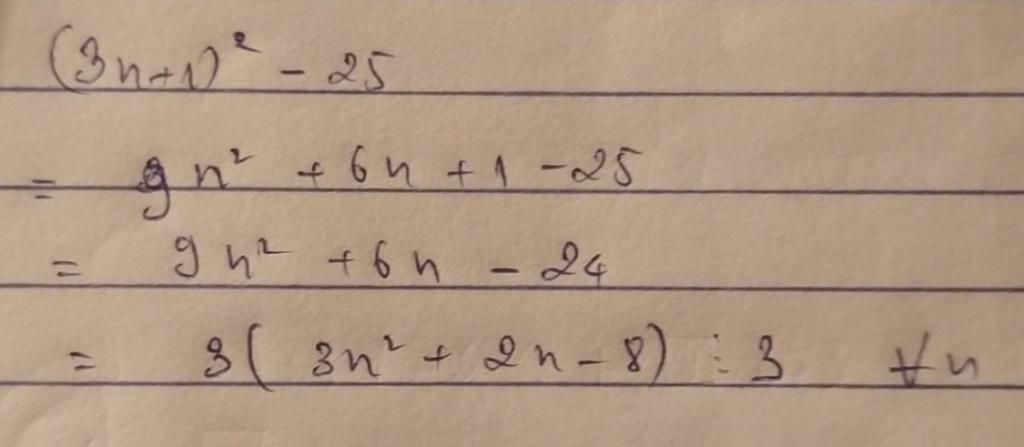 (3n+1)² - 25
= 9n² + 6n + 1 - 25
= 9n² + 6n - 24
= 3(3n² + 2n - 8) ⋮ 3 ∀n